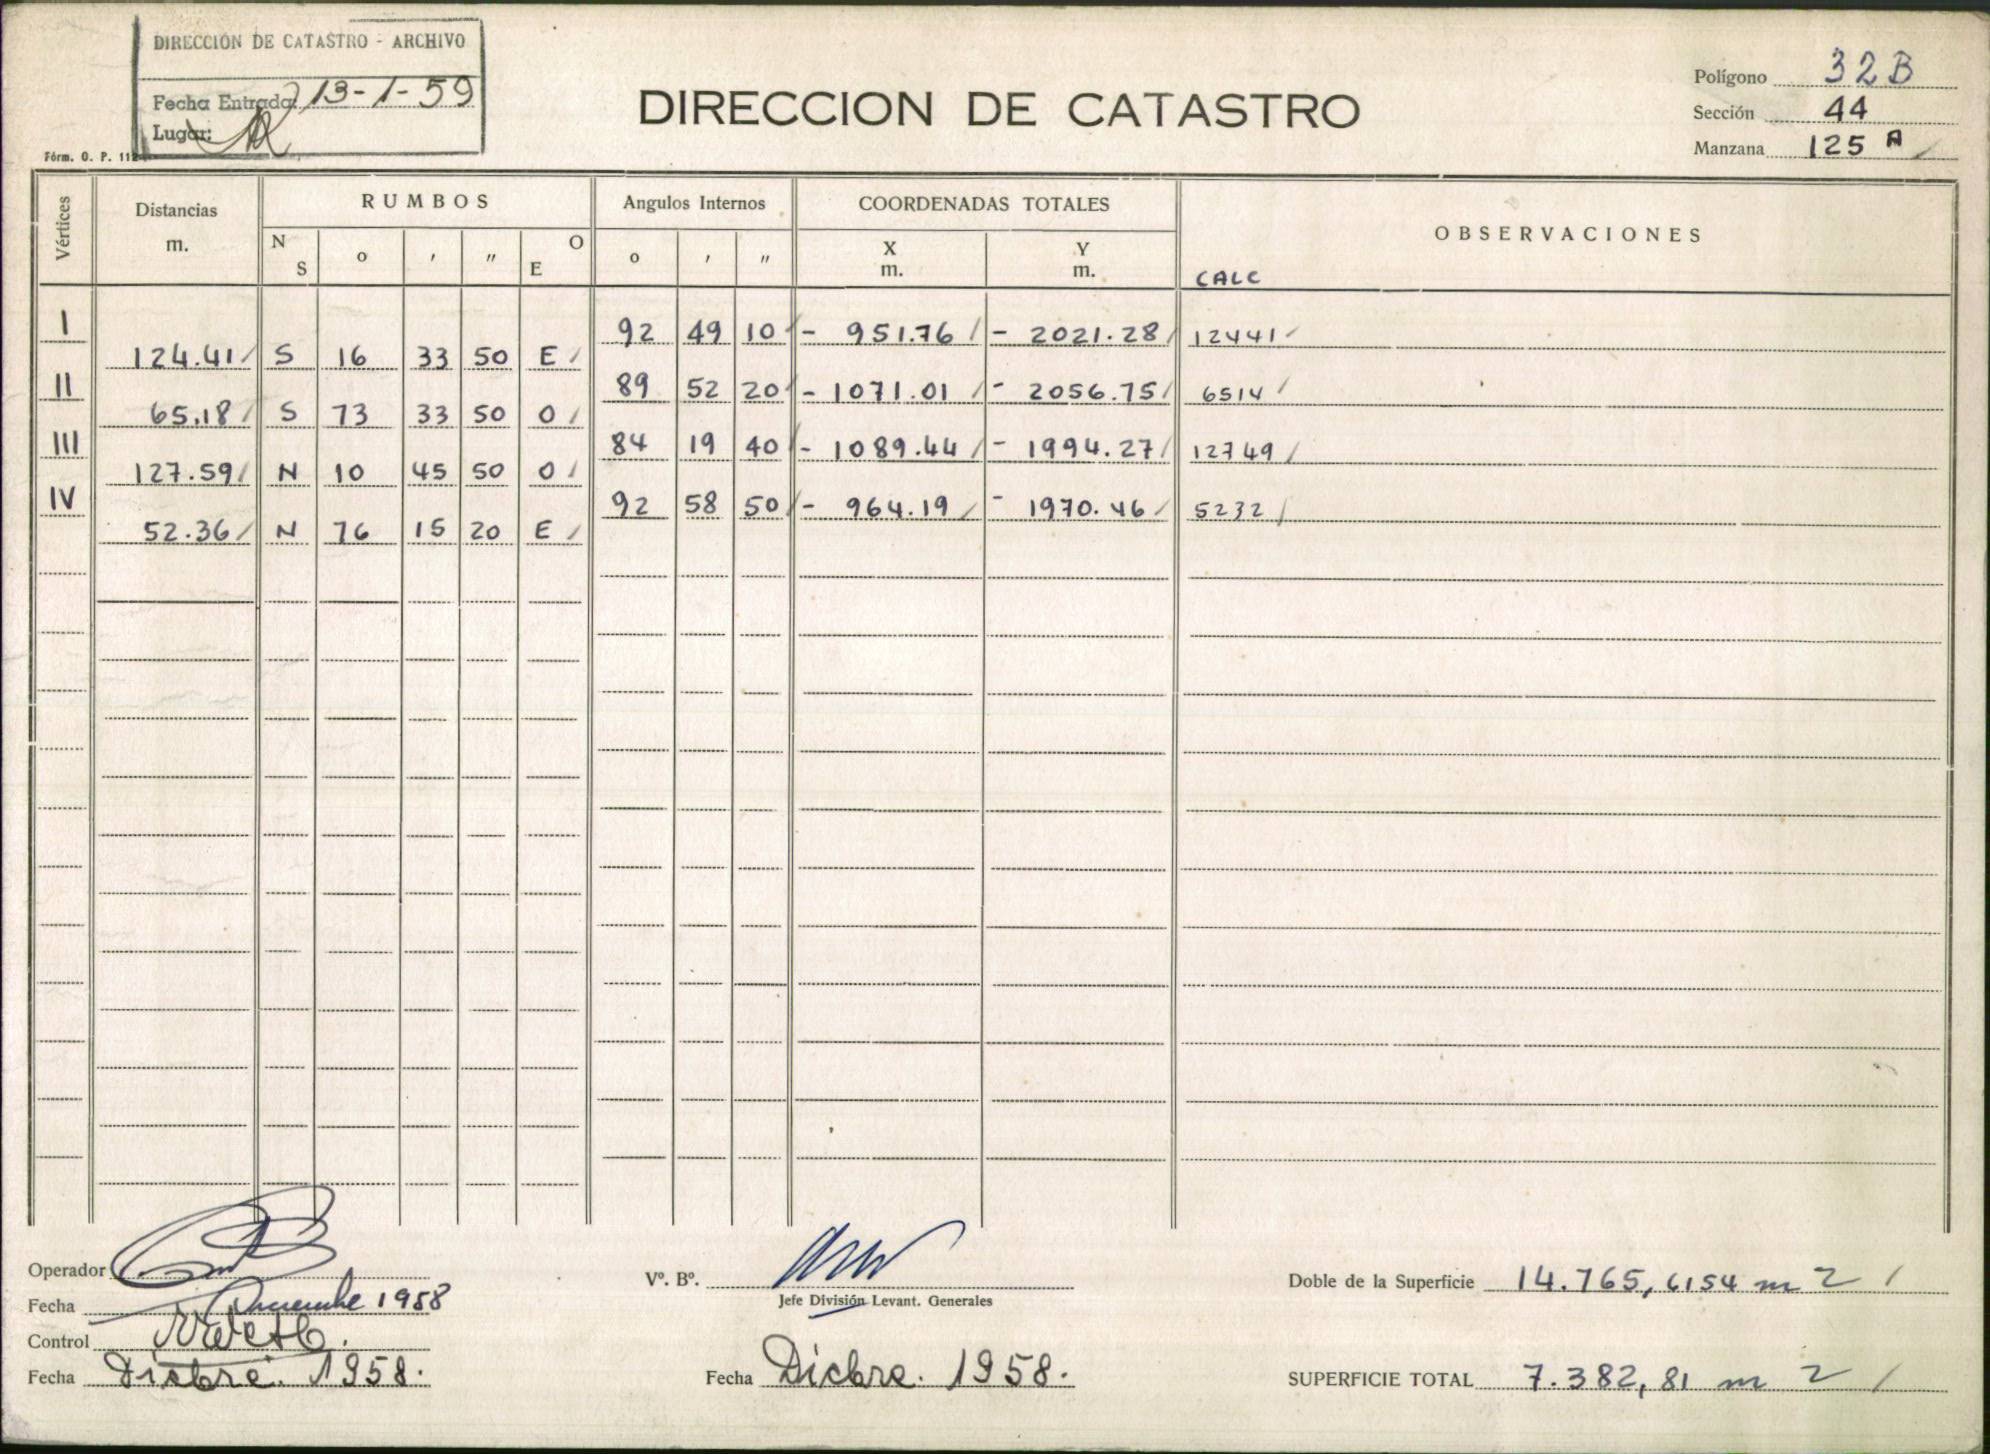 DIRECCION DE CATASTRO - ARCHIVO
Fecha Entrada: 13-1-59
Lugar:
Fórm. O. P. 112
DIRECCION DE CATASTRO
Polígono 32B
Sección 44
Manzana 125 A /
Vértices Distancias m. RUMBOS Angulos Internos COORDENADAS TOTALES OBSERVACIONES
N S o ' " O E o ' " X m. Y m. CALC
I 92 49 10 / - 951.76 / - 2021.28 / 12441 /
124.41 / S 16 33 50 E /
II 89 52 20 / - 1071.01 / - 2056.75 / 6514 /
65.18 / S 73 33 50 O /
III 84 19 40 / - 1089.44 / - 1994.27 / 12749 /
127.59 / N 10 45 50 O /
IV 92 58 50 / - 964.19 / - 1970.46 / 5232 /
52.36 / N 76 15 20 E /
Operador
Fecha Diciembre 1958
Control
Fecha Dicbre. 1958.
Vº. Bº.
Jefe División Levant. Generales
Fecha Dicbre. 1958.
Doble de la Superficie 14.765,6154 m 2 /
SUPERFICIE TOTAL 7.382,81 m 2 /